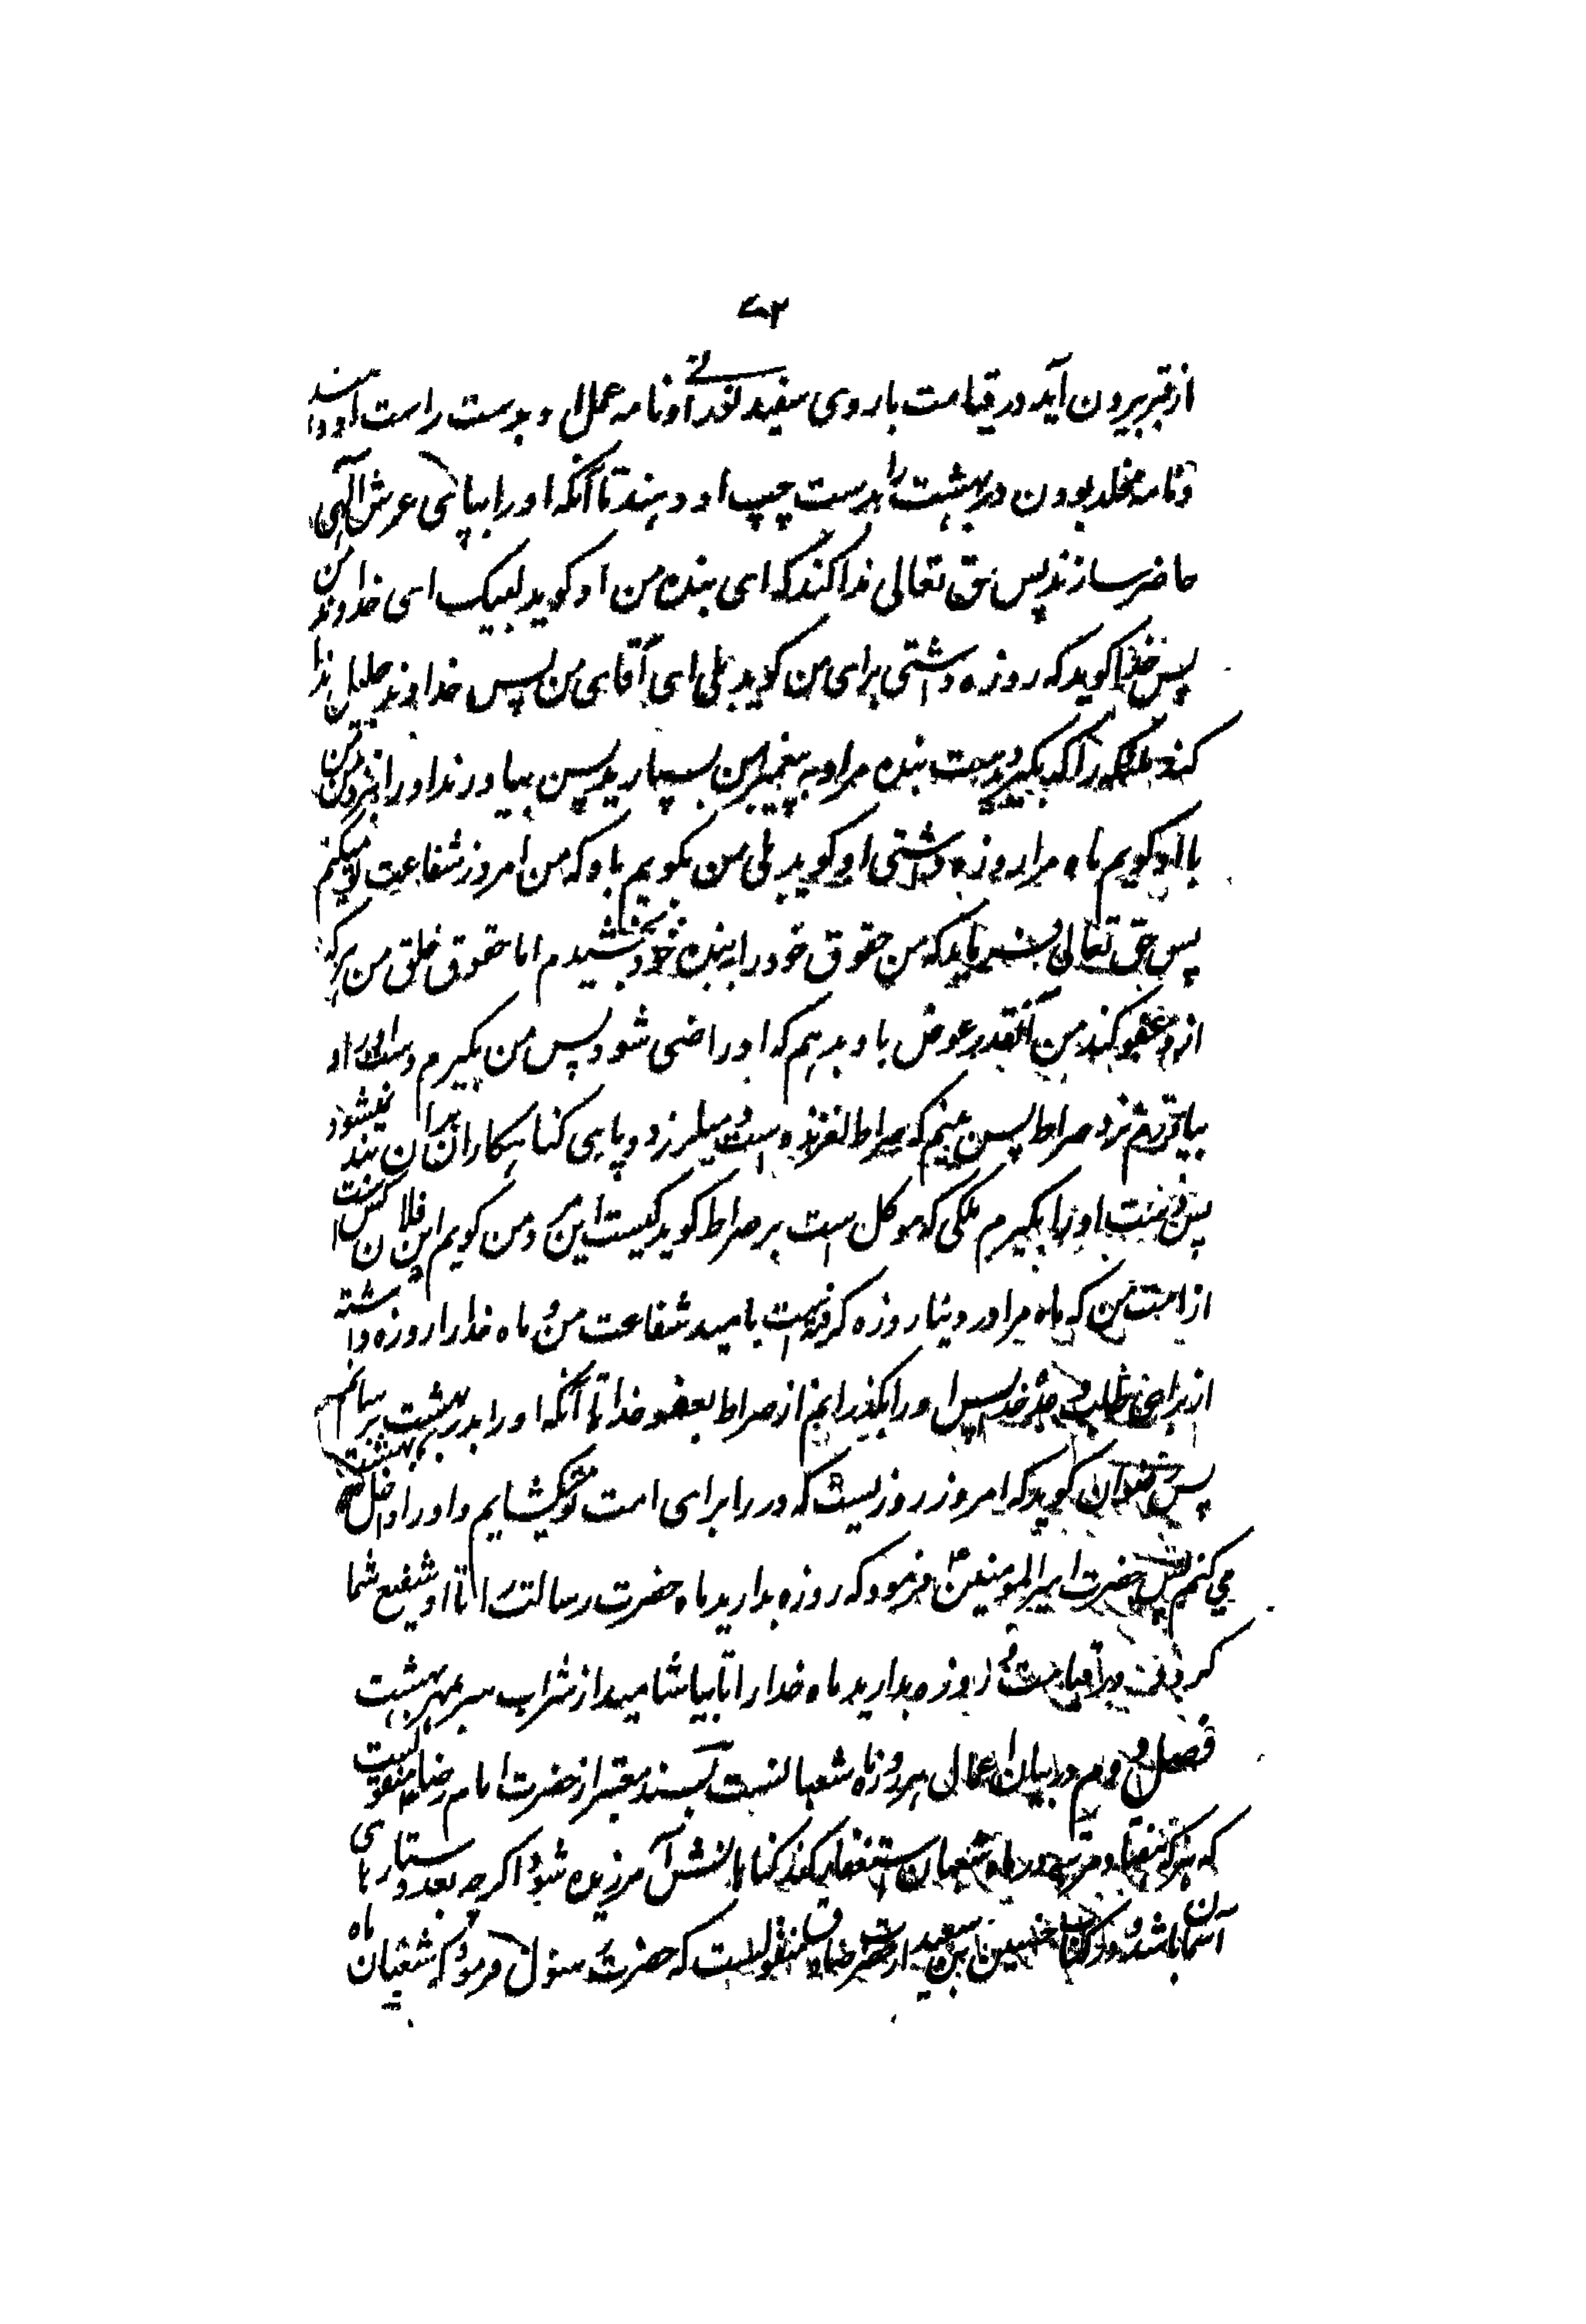 ۷۲
از قبر بیرون آید در قیامت با روی سفید نورانی و نامه عمل او بدست راست او دهند
و نامه مخلد بودن در بهشت را بدست چپ او دهند تا آنکه او را بپای عرش الهی
حاضر سازند پس حق تعالی ندا کند که ای بنده من او کوید لبیک ای خداوند من
پس خدا کوید که روزه داشتی برای من کوید بلی ای آقای من پس خداوند جلیل ندا
کند ملائکه را که بکیرید دست بنده مرا و به پیغمبر من بسپارید پس بیاورند او را نزد من
با او کویم ماه مرا روزه داشتی او کوید بلی من کویم باو که من امروز شفاعت تو میکنم
پس حق تعالی فرماید که من حقوق خود را ببنده خود بخشیدم اما حقوق خلق من هر که
از او عفو کند من آنقدر عوض باو بدهم که او راضی شود پس من بکیرم دست او را و
بیاورم نزد صراط پس بینم که صراط لغزنده است و میلرزد و پای کناهکاران بران بند نمیشود
پس دست او را بکیرم ملکی که موکل است بر صراط کوید کیست این مرد من کویم این فلان کس است
از امت من که ماه مرا در دنیا روزه کرفته است بامید شفاعت من و ماه خدا را روزه داشته
از برای طلب خدا پس او را بکذرانم از صراط بعفو خدا تا آنکه او را بدر بهشت برسانم
پس رضوان کوید که امروز روزیست که در را برای امت تو میکشایم و او را داخل بهشت
می کنم پس حضرت امیر المومنین ع فرمود که روزه بدارید ماه حضرت رسالت را تا او شفیع شما
کردد در قیامت و روزه بدارید ماه خدا را تا بیاشامید از شراب سر بمهر بهشت
فصل دوم در بیان اعمال هر روز ماه شعبانست بسند معتبر از حضرت امام رضا ع منقولست
که هر که هفتاد مرتبه در ماه شعبان استغفار کند کناهانش آمرزیده شود اکرچه بعدد ستارهای
آسمان باشد و در کتاب حسین بن سعید از حضرت رضا ع منقولست که حضرت رسول فرمود که شعبان ماه